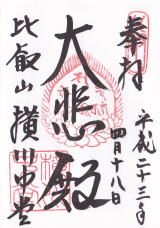 奉拝
平成二十三年
四月十八日
大悲殿
比叡山横川中堂